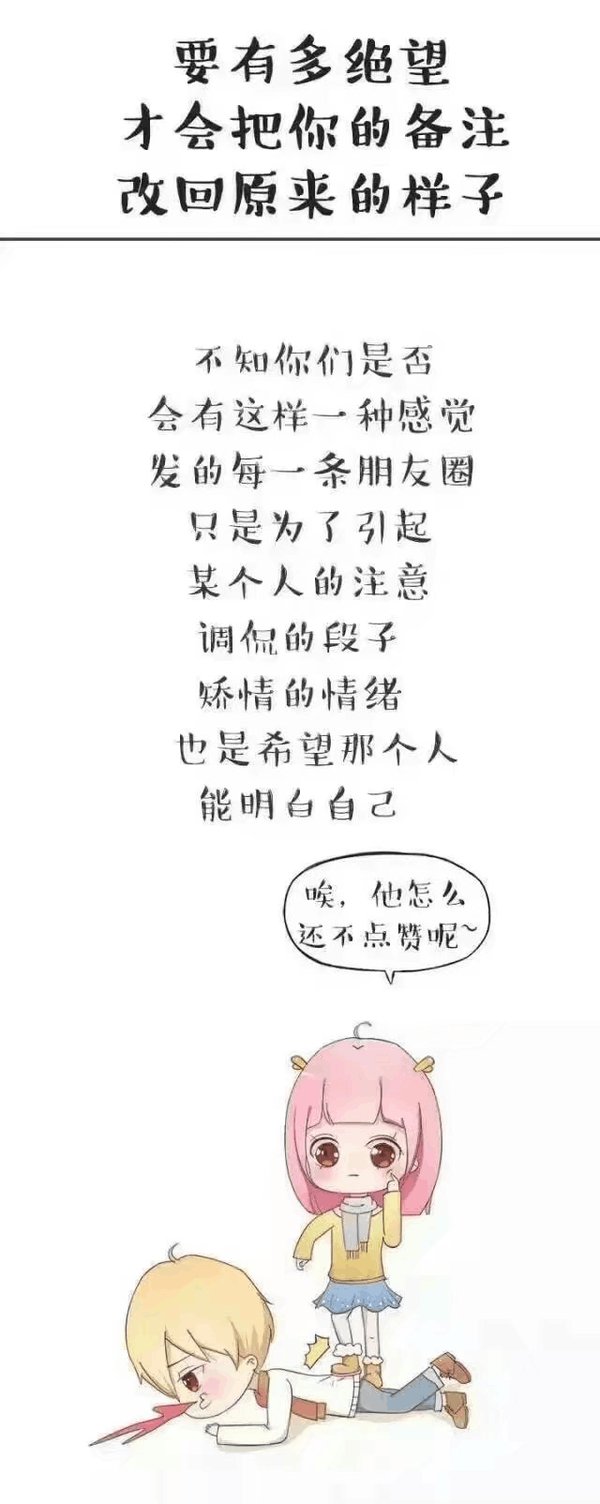 要有多绝望
才会把你的备注
改回原来的样子
不知你们是否
会有这样一种感觉
发的每一条朋友圈
只是为了引起
某个人的注意
调侃的段子
矫情的情绪
也是希望那个人
能明白自己
唉，他怎么
还不点赞呢~